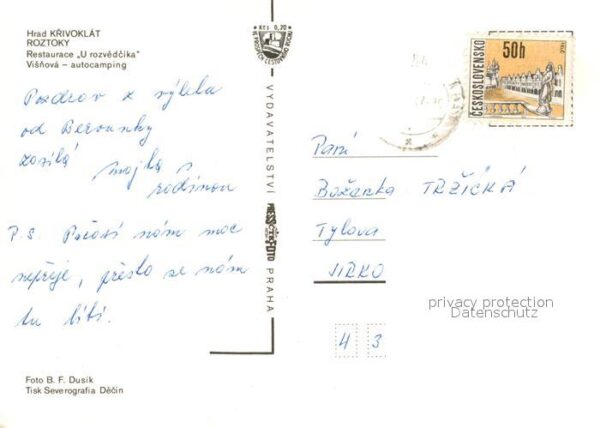 Hrad KŘIVOKLÁT
ROZTOKY
Restaurace „U rozvědčíka"
Višňová – autocamping
Pozdrav z výletu
od Berounky
zasílá
s rodinou
P.S. Počasí nám moc
nepřeje, přesto se nám
tu líbí.
Foto B. F. Dusík
Tisk Severografia Děčín
Kčs 0,20
VE PROSPĚCH CESTOVNÍHO RUCHU
VYDAVATELSTVÍ
PRESSFOTO
PRAHA
ČESKOSLOVENSKO
50h
TELČ
Paní
Boženka TRŽICKÁ
Tylova
JIRKO
4 3
privacy protection
Datenschutz